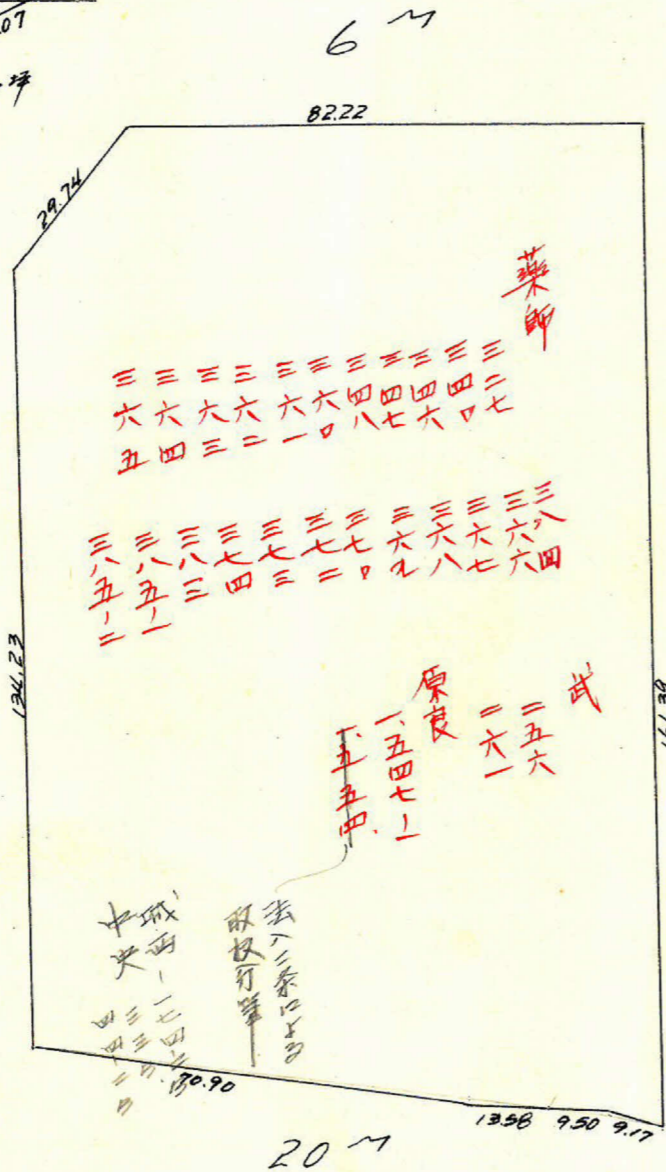 07
坪
6 M
82.22
29.74
134.23
薬師
三二七
三四〇
三四六
三四七
三四八
三六〇
三六一
三六二
三六三
三六四
三六五
三八四
三六六
三六七
三六八
三六九
三七〇
三七二
三七三
三七四
三八三
三八五ノ一
三八五ノ二
武
二五六
二六一
原良
一、五四七ノ一
一、五五四
法八二条による
城西
中央
70.90
13.58
9.50
9.17
20 M